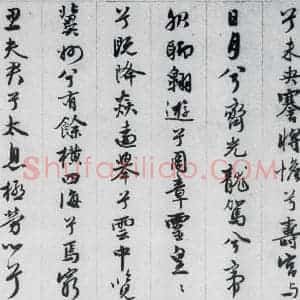 兮未央謇將憺兮壽宮與
日月兮齊光龍駕兮帝
服聊翱遊兮周章靈皇〻
兮既降猋遠舉兮雲中覽
冀州兮有餘橫四海兮焉窮
思夫君兮太息極勞心兮
Shufaziliao.com